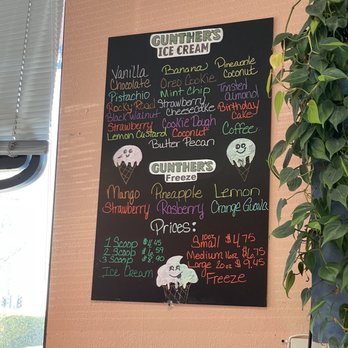 GUNTHER'S
ICE CREAM
Vanilla Banana Pineapple Coconut
Chocolate Oreo Cookie
Pistachio Mint Chip Toasted Almond
Rocky Road Strawberry Cheesecake Birthday Cake
Black Walnut
Strawberry Cookie Dough
Lemon Custard Coconut Coffee
Butter Pecan
GUNTHER'S
Freeze
Mango Pineapple Lemon
Strawberry Rasberry Orange Guava
Prices:
1 Scoop $4.45
2 Scoop $6.59
3 Scoop $8.90
Ice Cream
Small 10oz $4.75
Medium 16oz $6.75
Large 20oz $9.45
Freeze